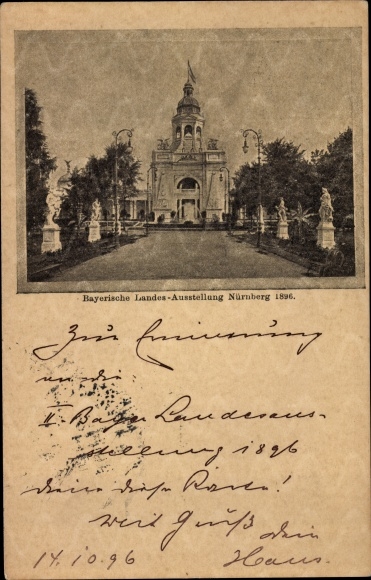 Bayerische Landes-Ausstellung Nürnberg 1896.
Zur Erinnerung
an die
II. Bayr Landesaus-
stellung 1896
diene diese Karte!
Mit Gruß Dein
14.10.96 Hans.